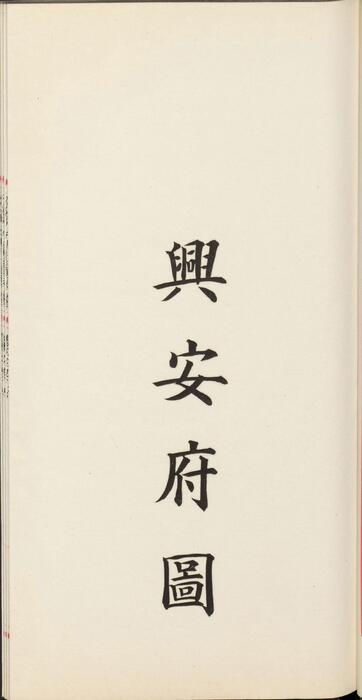 興安府圖